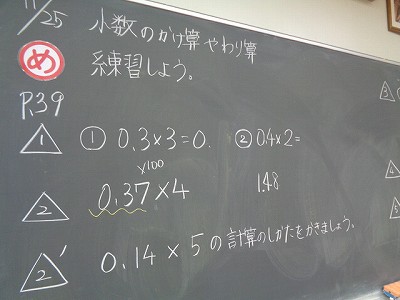 11/25 小数のかけ算やわり算
め 練習しよう。
P.39
1 ① 0.3×3=0. ② 0.4×2=
×100
2 0.37×4 1.48
2' 0.14×5の計算のしかたをかきましょう。
3
4